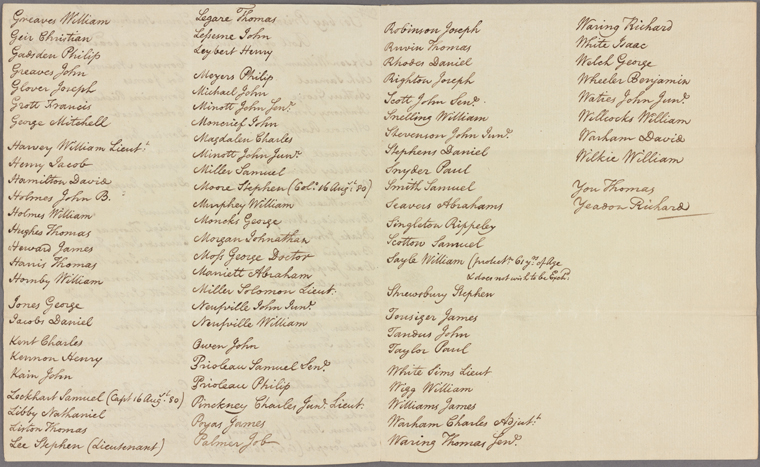 Greaves William
Geir Christian
Gadsden Philip
Greaves John
Glover Joseph
Grott Francis
George Mitchell
Harvey William Lieut.t
Henry Jacob
Hamilton David
Holmes John B.
Holmes William
Hughes Thomas
Heward James
Harris Thomas
Hornby William
Jones George
Jacobs Daniel
Kent Charles
Kennon Henry
Kain John
Lockhart Samuel (Capt 16 Aug.t 80)
Libby Nathaniel
Liston Thomas
Lee Stephen (Lieutenant)
Legare Thomas
Lesesne John
Leybert Henry
Meyers Philip
Michael John
Minott John Sen.r
Moncrief John
Magdalen Charles
Minott John Jun.r
Miller Samuel
Moore Stephen (Col.o 16 Aug.t 80)
Murphey William
Moncks George
Morgan Johnathan
Moss George Doctor
Marriett Abraham
Miller Solomon Lieut.
Neufville John Jun.r
Neufville William
Owen John
Prioleau Samuel Sen.r
Prioleau Philip
Pinckney Charles Jun.r Lieut.
Poyas James
Palmer Job
Robinson Joseph
Ruvin Thomas
Rhodes Daniel
Righton Joseph
Scott John Sen.r
Snelling William
Stevenson John Jun.r
Stephens Daniel
Snyder Paul
Smith Samuel
Seavers Abrahams
Singleton Rippeley
Scotton Samuel
Sayle William (protect.n 61 y.rs of Age
& does not wish to be Exch.d
Shrewsbury Stephen
Tousiger James
Tandus John
Taylor Paul
White Sims Lieut
Wigg William
Williams James
Warham Charles Adjut.t
Waring Thomas Sen.r
Waring Richard
White Isaac
Welch George
Wheeler Benjamin
Waties John Jun.r
Willcocks William
Warham David
Wilkie William
You Thomas
Yeadon Richard